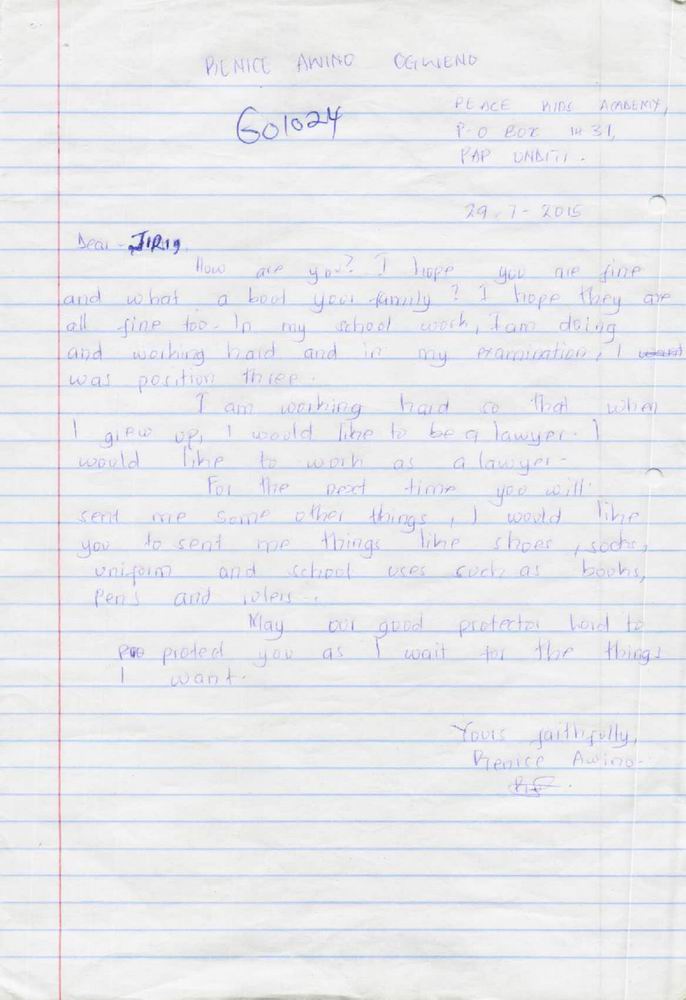 RENICE AWINO OGWENO
PEACE KIDS ACADEMY,
G01024
P.O BOX 1431,
PAP ONDITI.
29.7-2015
Dear - Jiří,
How are you? I hope you are fine
and what a bout your family? I hope they are
all fine too. In my school work, I am doing
and working hard and in my examination, I want
was position three.
I am working hard so that when
I grew up, I would like to be a lawyer. I
would like to work as a lawyer.
For the next time you will
sent me some other things, I would like
you to sent me things like shoes, socks,
uniform and school uses such as books,
pens and rulers..
May our good protector lord to
pro protect you as I wait for the things
I want.
Yours faithfully,
Renice Awino.